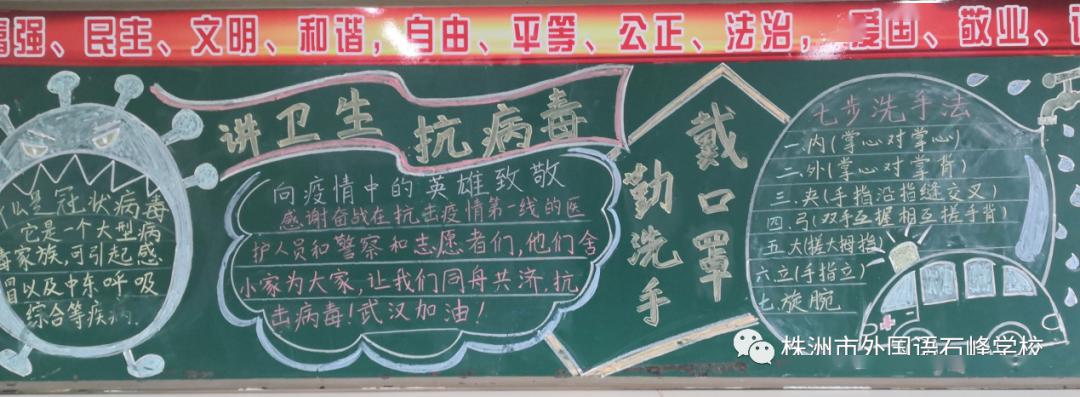 富强、民主、文明、和谐,自由、平等、公正、法治,爱国、敬业、
讲卫生 抗病毒
么是冠状病毒
它是一个大型病
毒家族,可引起感
冒以及中东呼吸
综合等疾病.
向疫情中的英雄致敬
感谢奋战在抗击疫情第一线的医
护人员和警察和志愿者们,他们舍
小家为大家,让我们同舟共济.抗
击病毒!武汉加油!
勤洗手
戴口罩
七步洗手法
一.内(掌心对掌心)
二.外(掌心对掌背)
三.夹(手指沿指缝交叉)
四.弓(双手互握相互搓手背)
五.大(搓大拇指)
六.立(手指立)
七.旋腕
株洲市外国语石峰学校